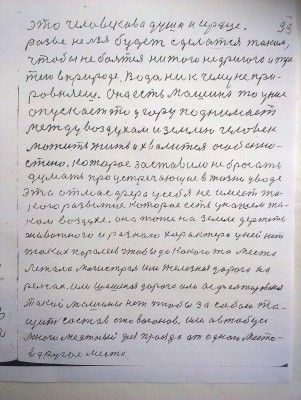 93
это человекова душа и сердце.
разве нельзя будет сделатся таким,
чтобы не боятся никого не другого и тре
тего в природе. Вода ни к чему не при-
ровнялась. Она есть машина то уние
опускает то у гору поднимает
между воздухам и землею человек
может жить и хвалится особенно-
стею. которое заставило не бросать
думать про устрегающие в жизни у воде
эта отмасфера у себя не имеет та-
кого развитие которое есть у нашем та-
ком воздухе. она тоже на земле держать
живатного и разного характера у ней нет
таких паралев чтобы до какого та места
лежала магистрал или железная дорога на
рельсах, или шашеная дорога или асфальтированая
такой машины нет чтобы за собою та-
щит состав сто вагонов, или автобус
много местный для проезда от одного места
в другое место.